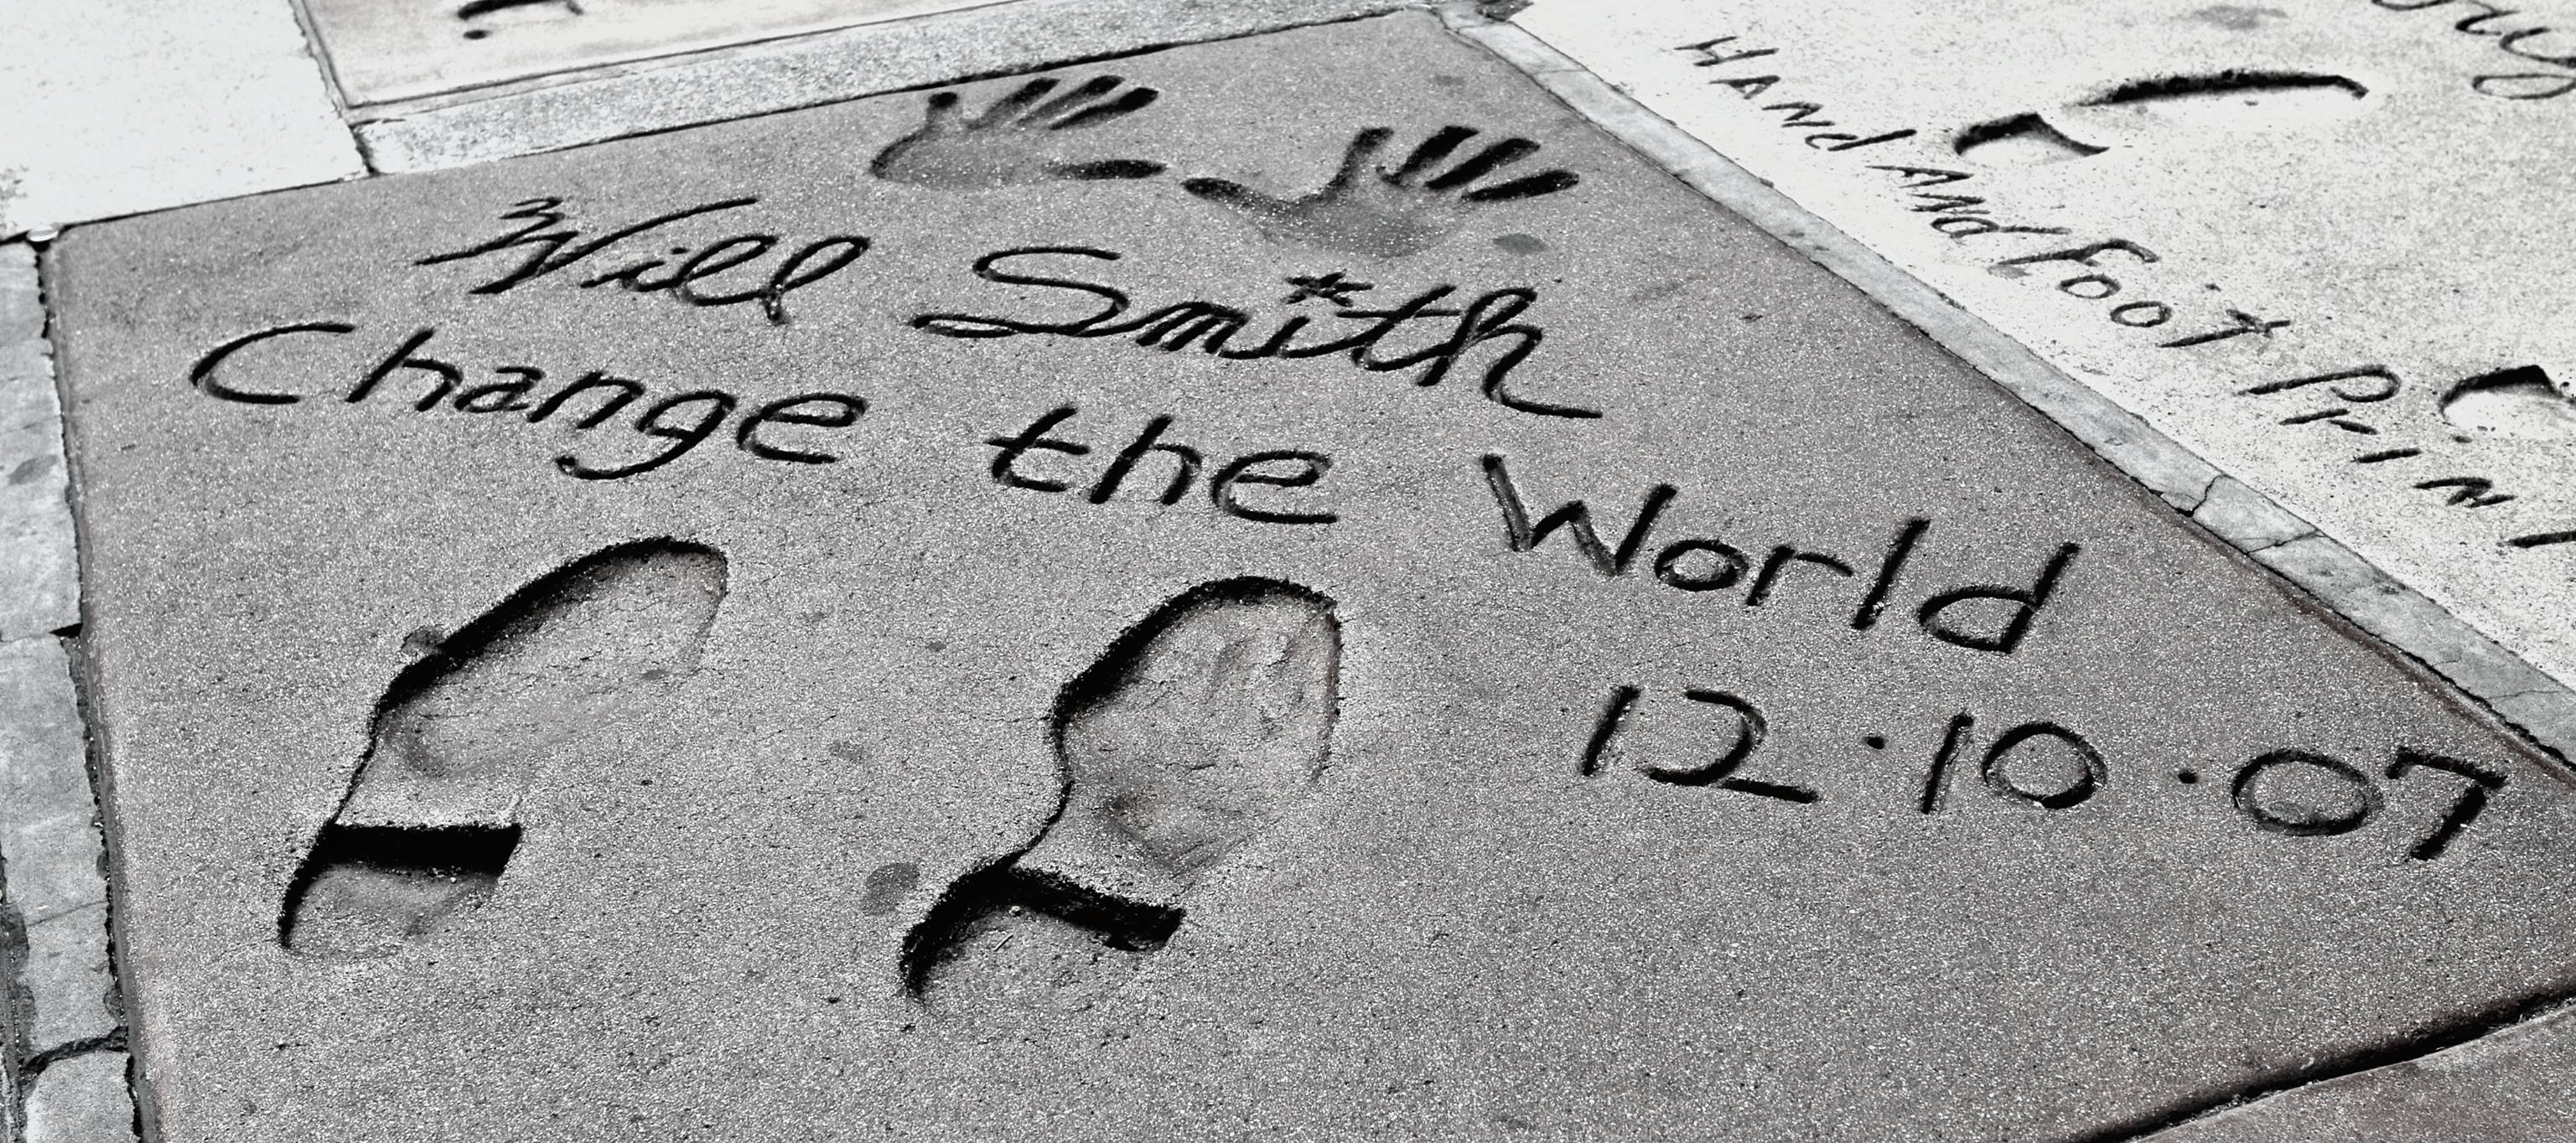 Will Smith
Change the World
12·10·07
HANd ANd FooT PriNT